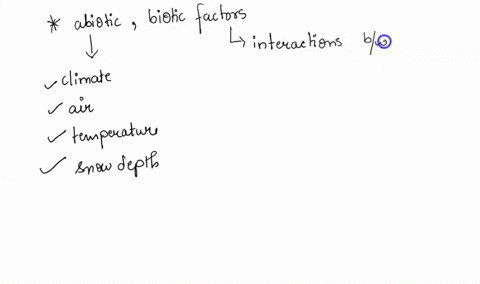 * abiotic, biotic factors
↳ interactions b/w
✓ climate
✓ air
✓ temperature
✓ snow depth